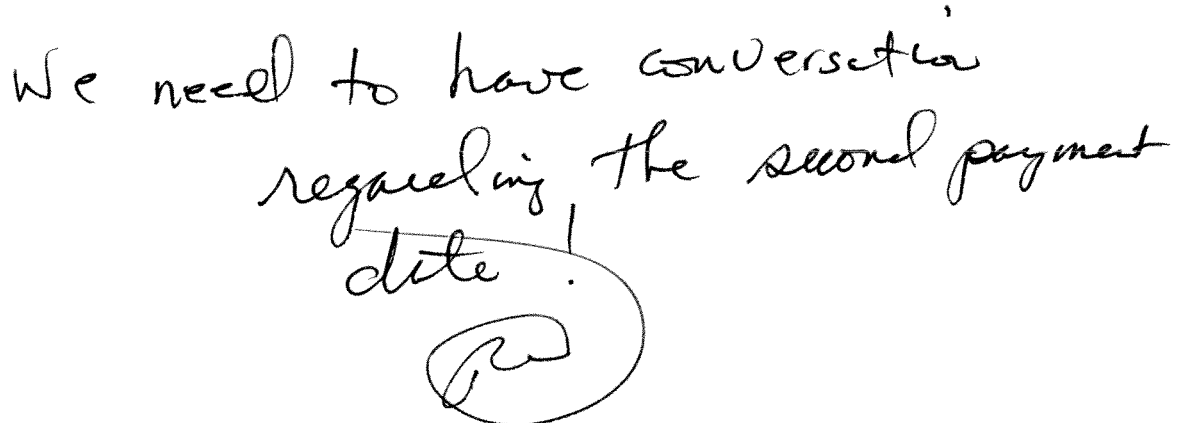 We need to have conversation
regarding the second payment
date !